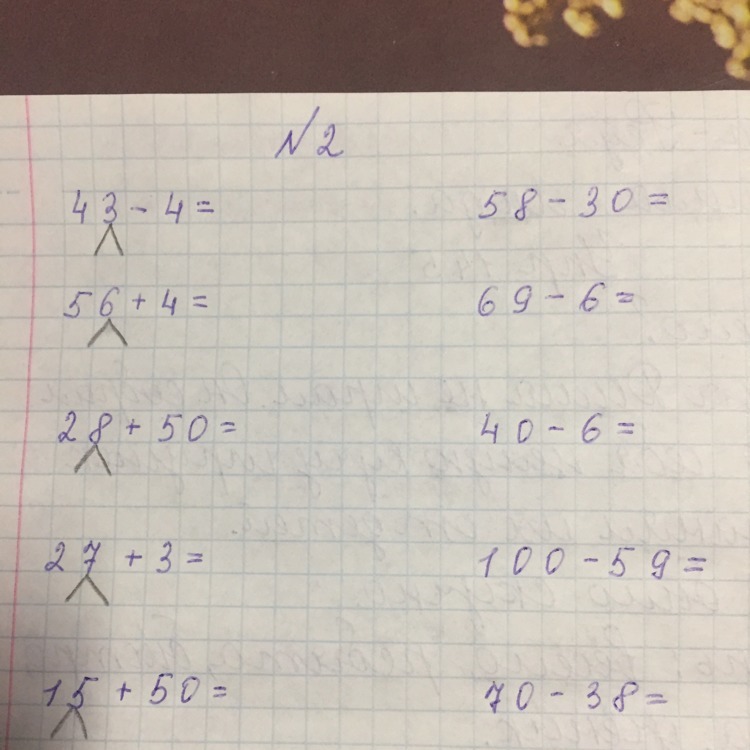 №2
43 - 4 =
58 - 30 =
56 + 4 =
69 - 6 =
28 + 50 =
40 - 6 =
27 + 3 =
100 - 59 =
15 + 50 =
70 - 38 =